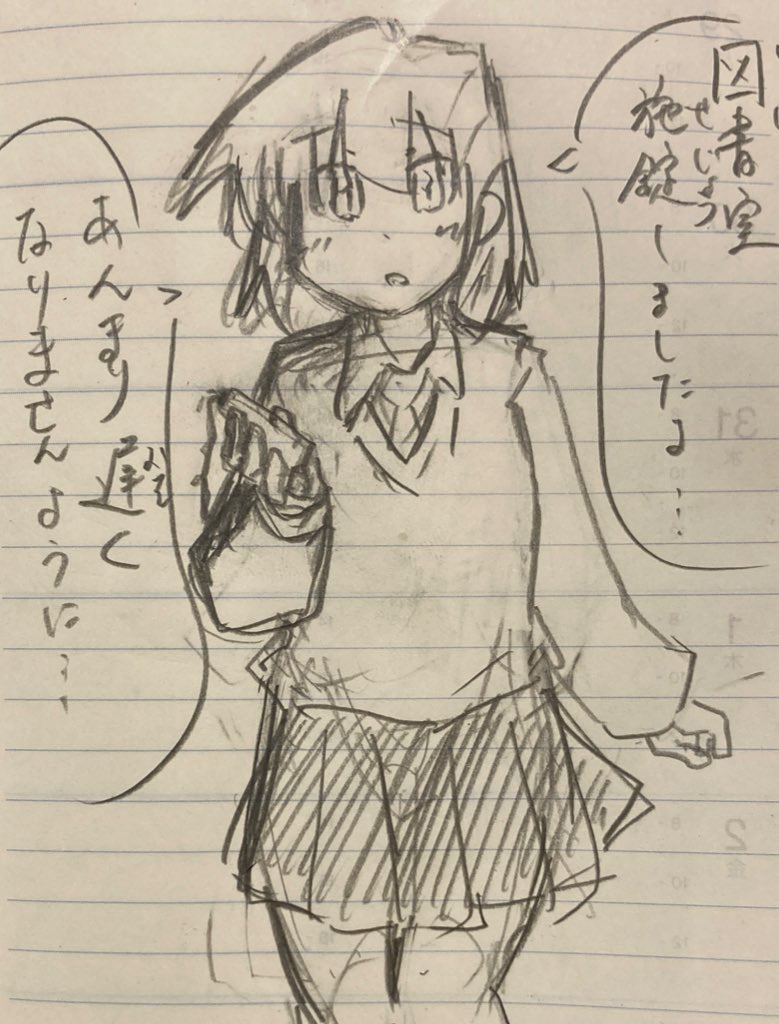 図書室
せじょう
施錠しましたよ…
あんまり遅く
おそ
なりませんように…